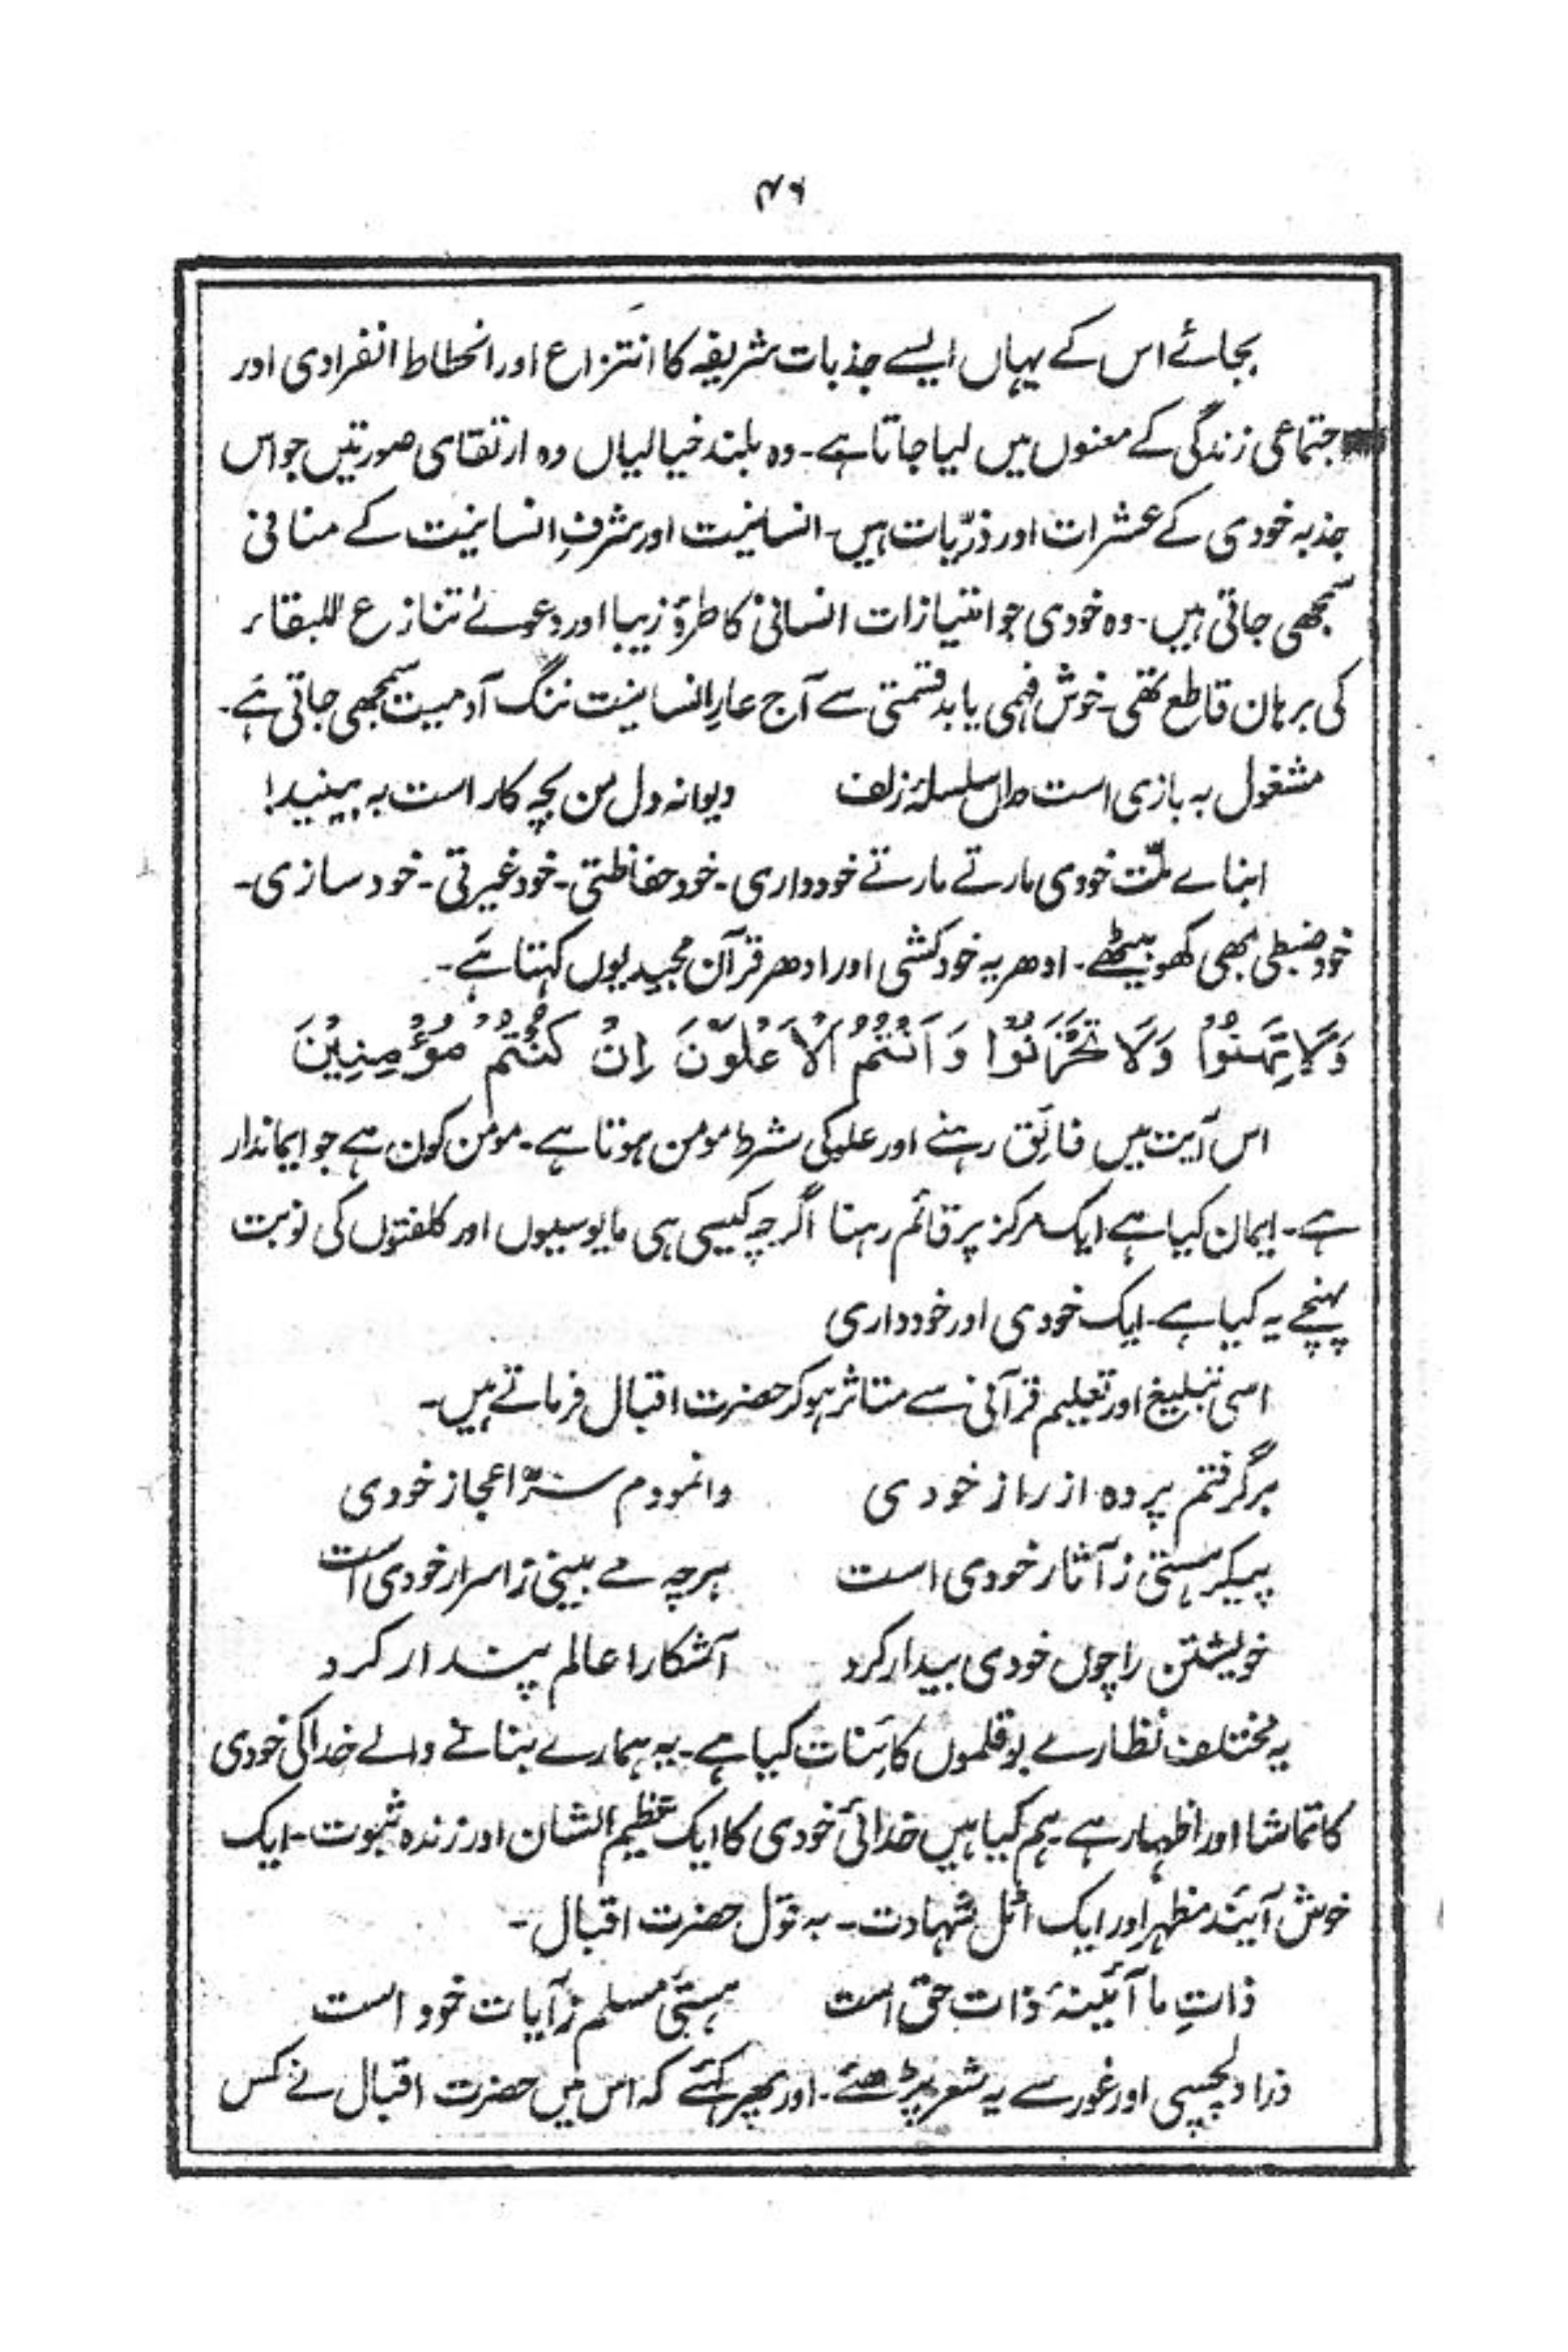 ۴۶
بجائے اس کے یہاں ایسے جذبات شریفہ کا انتزاع اور انحطاط انفرادی اور
جتماعی زندگی کے معنوں میں لیا جاتا ہے۔ وہ بلند خیالیاں وہ ارتقای صورتیں جو اس
جذبہ خودی کے عشرات اور ذرّیات ہیں۔ انسانیت اور شرفِ انسانیت کے منافی
سمجھی جاتی ہیں۔ وہ خودی جو امتیازات انسانی کا طرۂ زیبا اور دعوئے تنازع للبقاء
کی برہان قاطع تھی۔ خوش فہمی یا بدقسمتی سے آج عارِ انسانیت ننگ آدمیت سمجھی جاتی ہے۔
مشغول بہ بازی است طال سلسلۂ زلف دیوانہ دل من بچہ کار است بہ بینید!
ابناے ملّت خودی مارتے مارتے خودداری۔ خود حفاظتی۔ خود غیرتی۔ خود سازی۔
خود ضبطی بھی کھو بیٹھے۔ ادھر یہ خودکشی اور ادھر قرآن مجید یوں کہتا ہے۔
وَلَا تَهِنُوْا وَلَا تَحْزَنُوْا وَاَنْتُمُ الْاَعْلَوْنَ اِنْ كُنْتُمْ مُؤْمِنِيْنَ
اس آیت میں فائق رہنے اور علو کی شرط مومن ہونا ہے۔ مومن کون ہے جو ایماندار
ہے۔ ایمان کیا ہے ایک مرکز پر قائم رہنا اگرچہ کیسی ہی مایوسیوں اور کلفتوں کی نوبت
پہنچے یہ کیا ہے۔ ایک خودی اور خودداری
اسی تبلیغ اور تعلیم قرآنی سے متاثر ہو کر حضرت اقبال فرماتے ہیں۔
برگرفتم پردہ از راز خودی وانمودم سرّ اعجاز خودی
پیکر ہستی ز آثار خودی است ہرچہ مے بینی ز اسرار خودی است
خویشتن را چوں خودی بیدار کرد آشکارا عالم پندار کرد
یہ مختلف نظارے بوقلموں کائنات کیا ہے۔ یہ ہمارے بنانے والے خدا کی خودی
کا تماشا اور اظہار ہے۔ ہم کیا ہیں خدائی خودی کا ایک عظیم الشان اور زندہ ثبوت۔ ایک
خوش آیند مظہر اور ایک اٹل شہادت۔ بہ قول حضرت اقبال۔
ذاتِ ما آئینۂ ذات حق است ہستیٔ مسلم ز آیات خود است
ذرا دلچسپی اور غور سے یہ شعر پڑھئے۔ اور پھر کہئے کہ اس میں حضرت اقبال نے کس